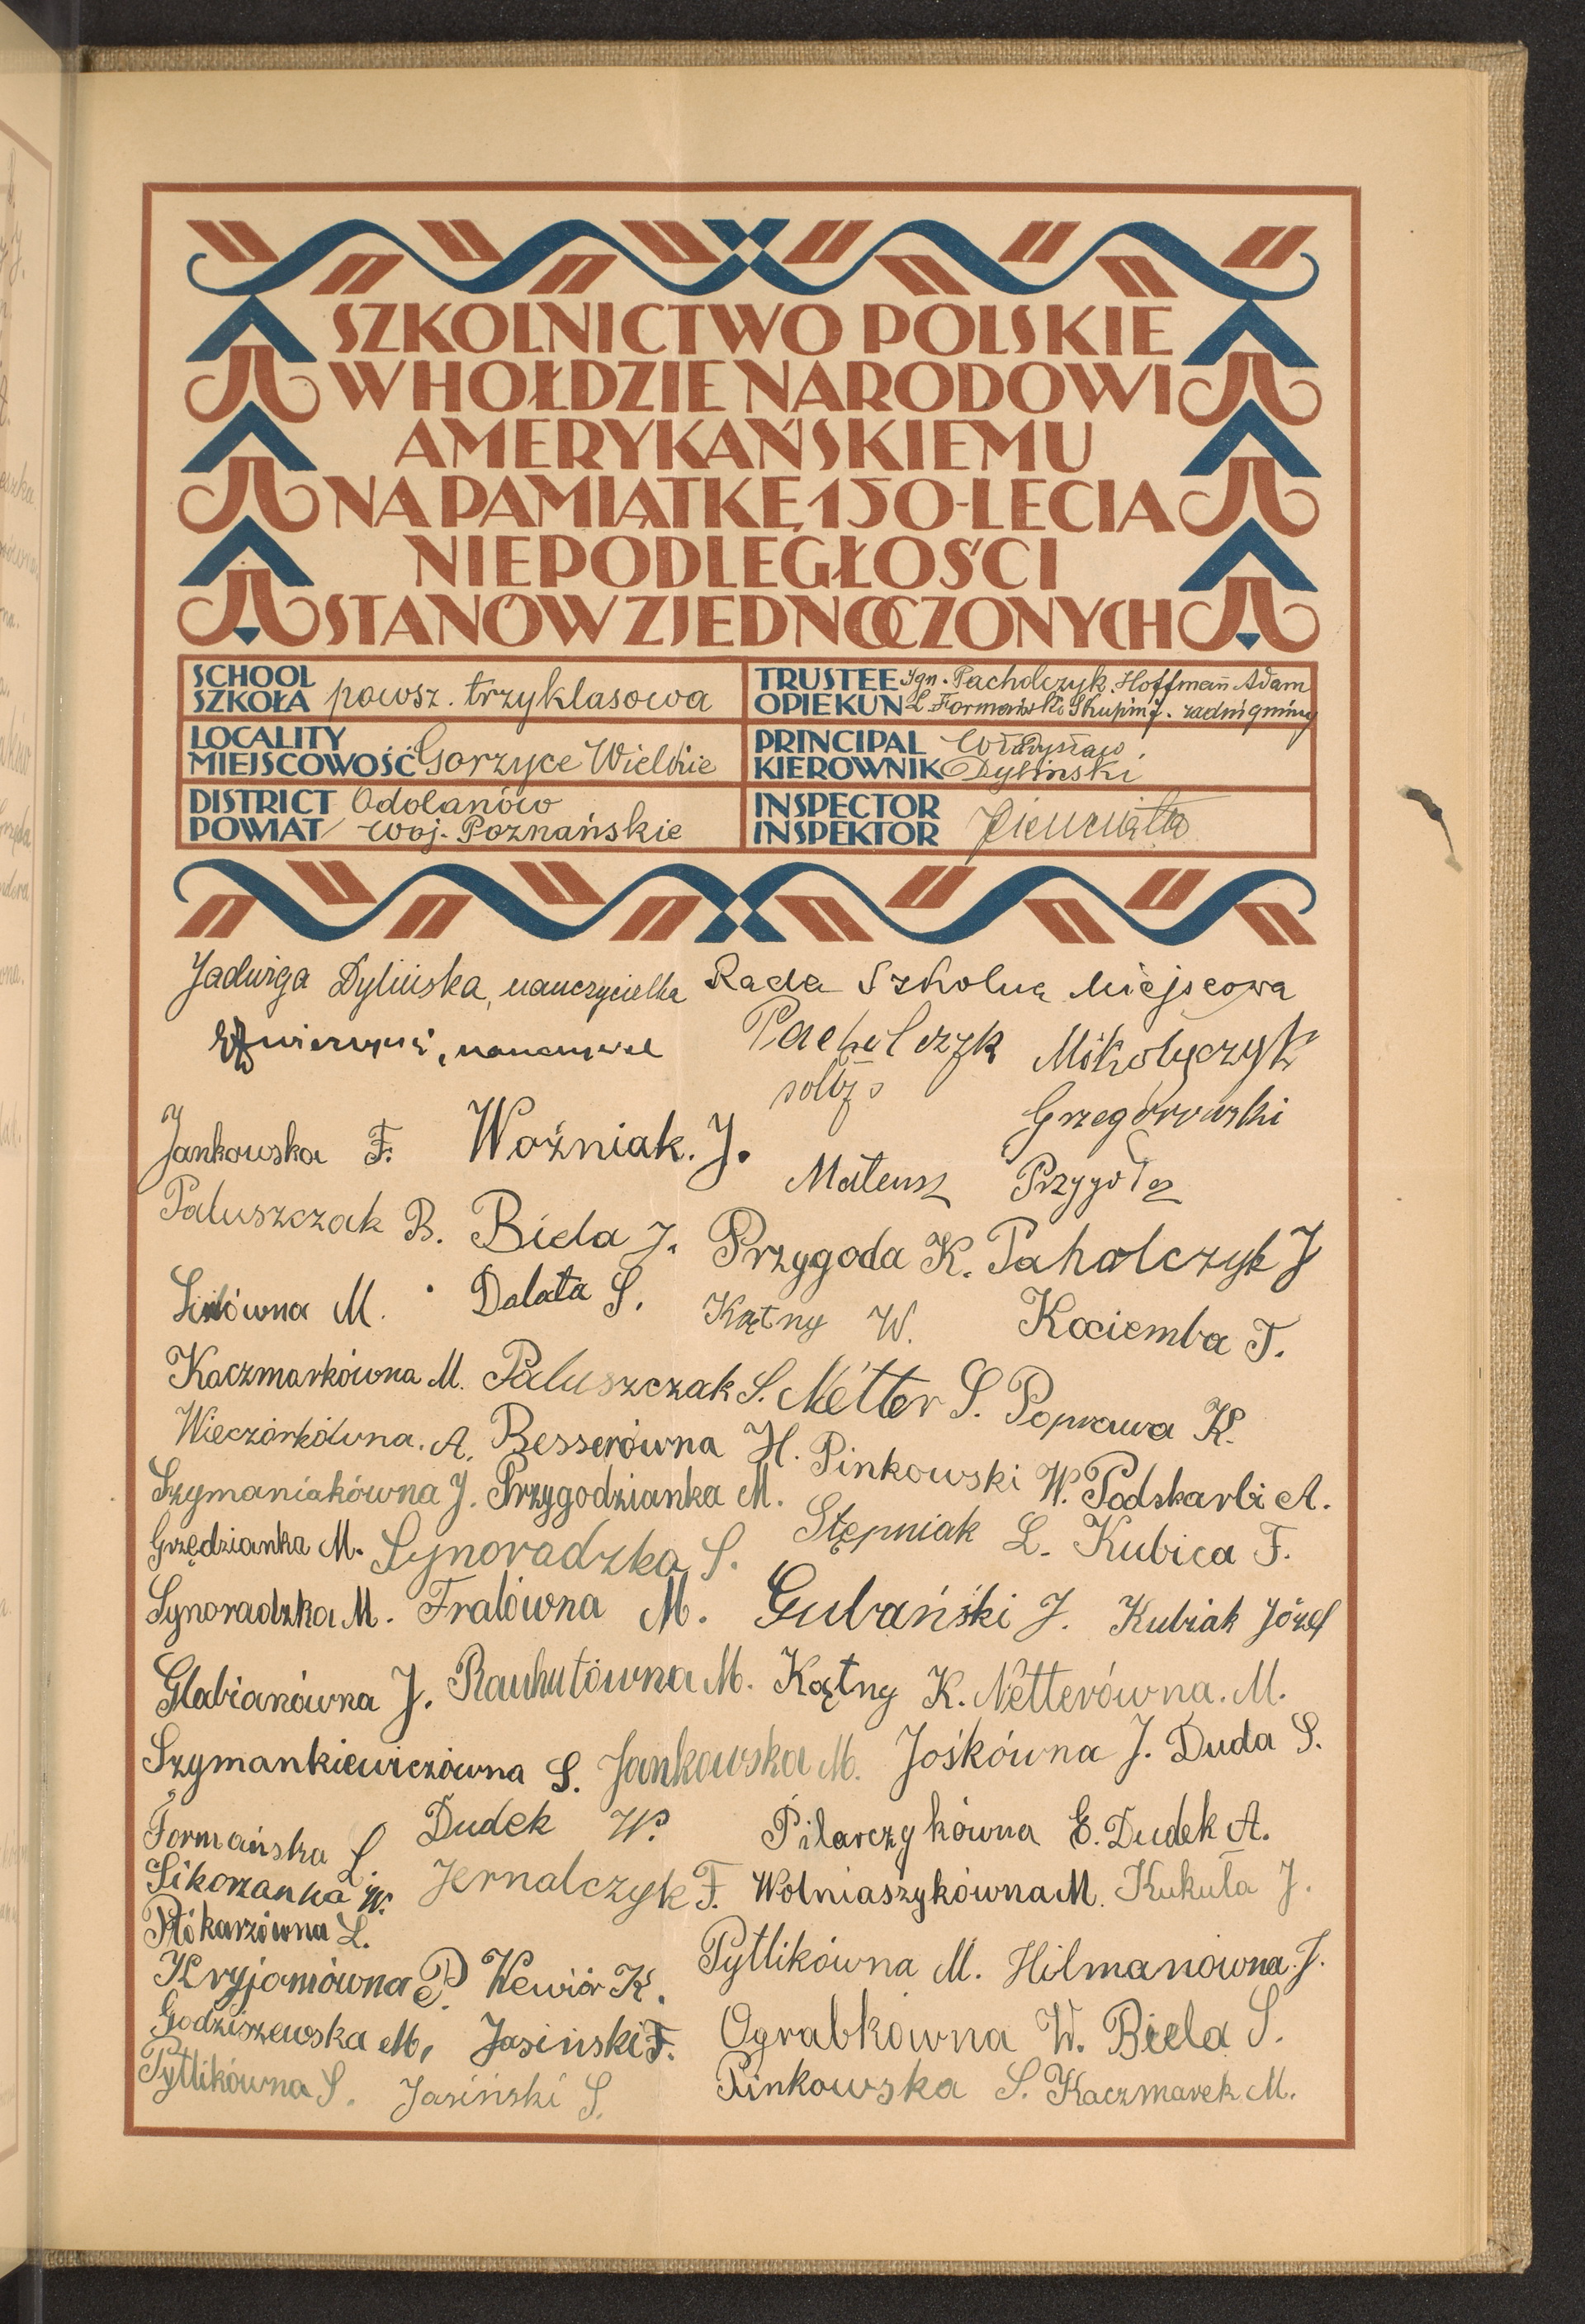 SZKOLNICTWO POLSKIE
W HOŁDZIE NARODOWI
AMERYKAŃSKIEMU
NA PAMIĄTKĘ 150-LECIA
NIEPODLEGŁOŚCI
STANÓW ZJEDNOCZONYCH
SCHOOL
SZKOŁA powsz. trzyklasowa
TRUSTEE Ign. Pacholczyk, Hoffmann Adam
OPIEKUN L. Formański Skupin J. radni gminy
LOCALITY
MIEJSCOWOŚĆ Gorzyce Wielkie
PRINCIPAL Władysław
KIEROWNIK Dyliński
DISTRICT Odolanów
POWIAT woj. Poznańskie
INSPECTOR
INSPEKTOR
Jadwiga Dylińska, nauczycielka
Rada Szkolna Miejscowa
nauczyciel
Pacholczyk Mikołajczyk
sołtys
Grzegorowski
Jankowska F. Woźniak. J.
Mateusz Przygoda
Paluszczak B. Biela J. Przygoda K. Paholczyk J
M. Dalata S. Kątny W. Kociemba T.
Kaczmarkówna M. Paluszczak S. Netter S. Poprawa K.
Wieczorkówna. A. Besserówna H. Pinkowski W. Podskarbi A.
Szymaniakówna J. Przygodzianka M. Stępniak L. Kubica F.
Grzędzianka M. Synoradzka S.
Synoradzka M. Fralówna M. Gubański J. Kubiak Józef
Glabianówna J. Rauhutówna M. Kątny K. Netterówna. M.
Szymankiewiczówna S. Jankowska M. Jośkówna J. Duda S.
Formańska L. Dudek W. Pilarczykówna E. Dudek A.
Sikorzanka W. Jernalczyk F. Wolniaszykówna M. Kukuła J.
Ptókarzówna L.
Kryjomówna P. Wewiór K. Pytlikówna M. Hilmanówna. J.
Godziszewska M, Jasiński F. Ograbkówna W. Biela S.
Pytlikówna S. Jasiński S. Pinkowska S. Kaczmarek M.